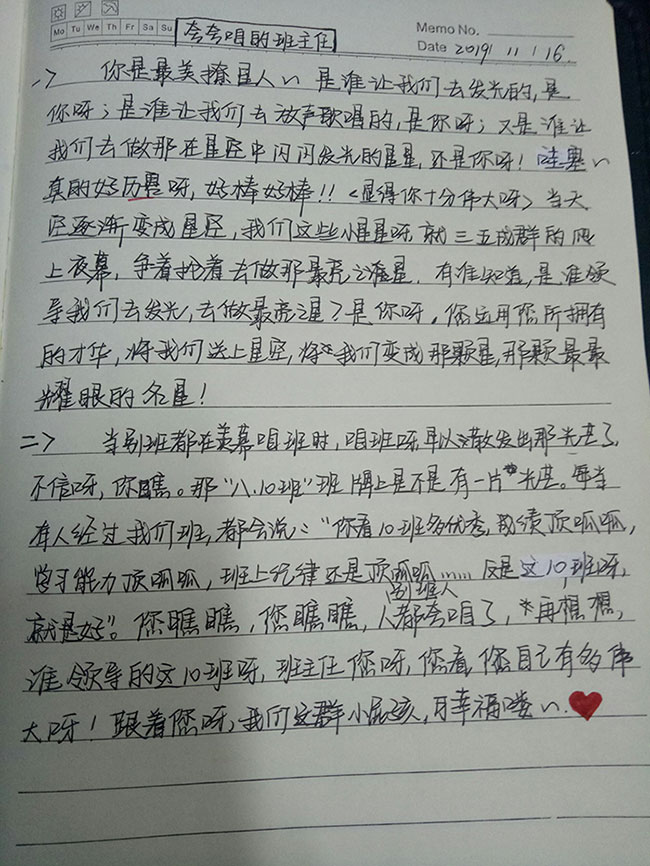 Mo Tu We Th Fr Sa Su
夸夸咱的班主任
Memo No.
Date 2019 / 11 / 16.
一> 你是最美撩星人~ 是谁让我们去发光的,是
你呀;是谁让我们去放声歌唱的,是你呀;又是谁让
我们去做那在星空中闪闪发光的星星,还是你呀!哇塞~
真的好厉害呀,好棒好棒!!<显得你十分伟大呀>当天
空逐渐变成星空,我们这些小星星呀就三五成群的爬
上夜幕,争着抢着去做那最亮之星。有谁知道,是谁领
导我们去发光,去做最亮之星?是你呀。您运用您所拥有
的才华,将我们送上星空,将我们变成那颗星,那颗最最
耀眼的名星!
二> 当别班都在羡慕咱班时,咱班呀早以散发出那光芒了
不信呀,你瞧。那“八.10班”班牌上是不是有一片光芒。每当
有人经过我们班,都会说:“你看10班多优秀,成绩顶呱呱,
学习能力顶呱呱,班上纪律还是顶呱呱……反是这10班呀,
就是好”。您瞧瞧,您瞧瞧,别班人人都夸咱了,再想想,
谁领导的这10班呀,班主任您呀,您看您自己有多伟
大呀!跟着您呀,我们这群小屁孩,可幸福喽~.